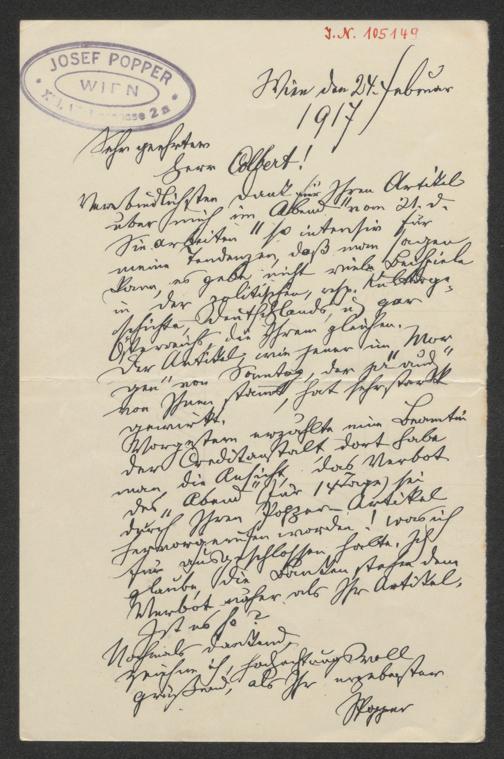 I.N. 105149
JOSEF POPPER
WIEN
Wien den 24. Februar
1917
Sehr geehrter
Herr Colbert!
Verbindlichsten Dank für Ihren Artikel
über mich im Abend" vom 21. d.
Sie arbeiten so intensiv für
meine Tendenzen, daß man sagen
kann, es gebe nicht viele Beispiele
in der politischen, resp. Kulturge-
schichte, Deutschlands, u. gar
Österreichs, die Ihrem gleichen.
Der Artikel, wie jener im Mor
gen" von Sonntag, der ja auch
von Ihnen stammt, hat sehr stark
gewirkt.
Vorgestern erzählte eine Beamtin
der Creditanstalt dort habe
man die Ansicht, das Verbot
des Abend" (für 14 Tage) sei
durch Ihren Popper-Artikel
hervorgerufen worden! was ich
für ausgeschlossen halte. Ich
glaube, die Banken stehen dem
Verbot näher als Ihr Artikel.
Ist es so?
Nochmals dankend,
zeichne ich, hochachtungsvoll
grüßend, als Ihr ergebenster
Popper